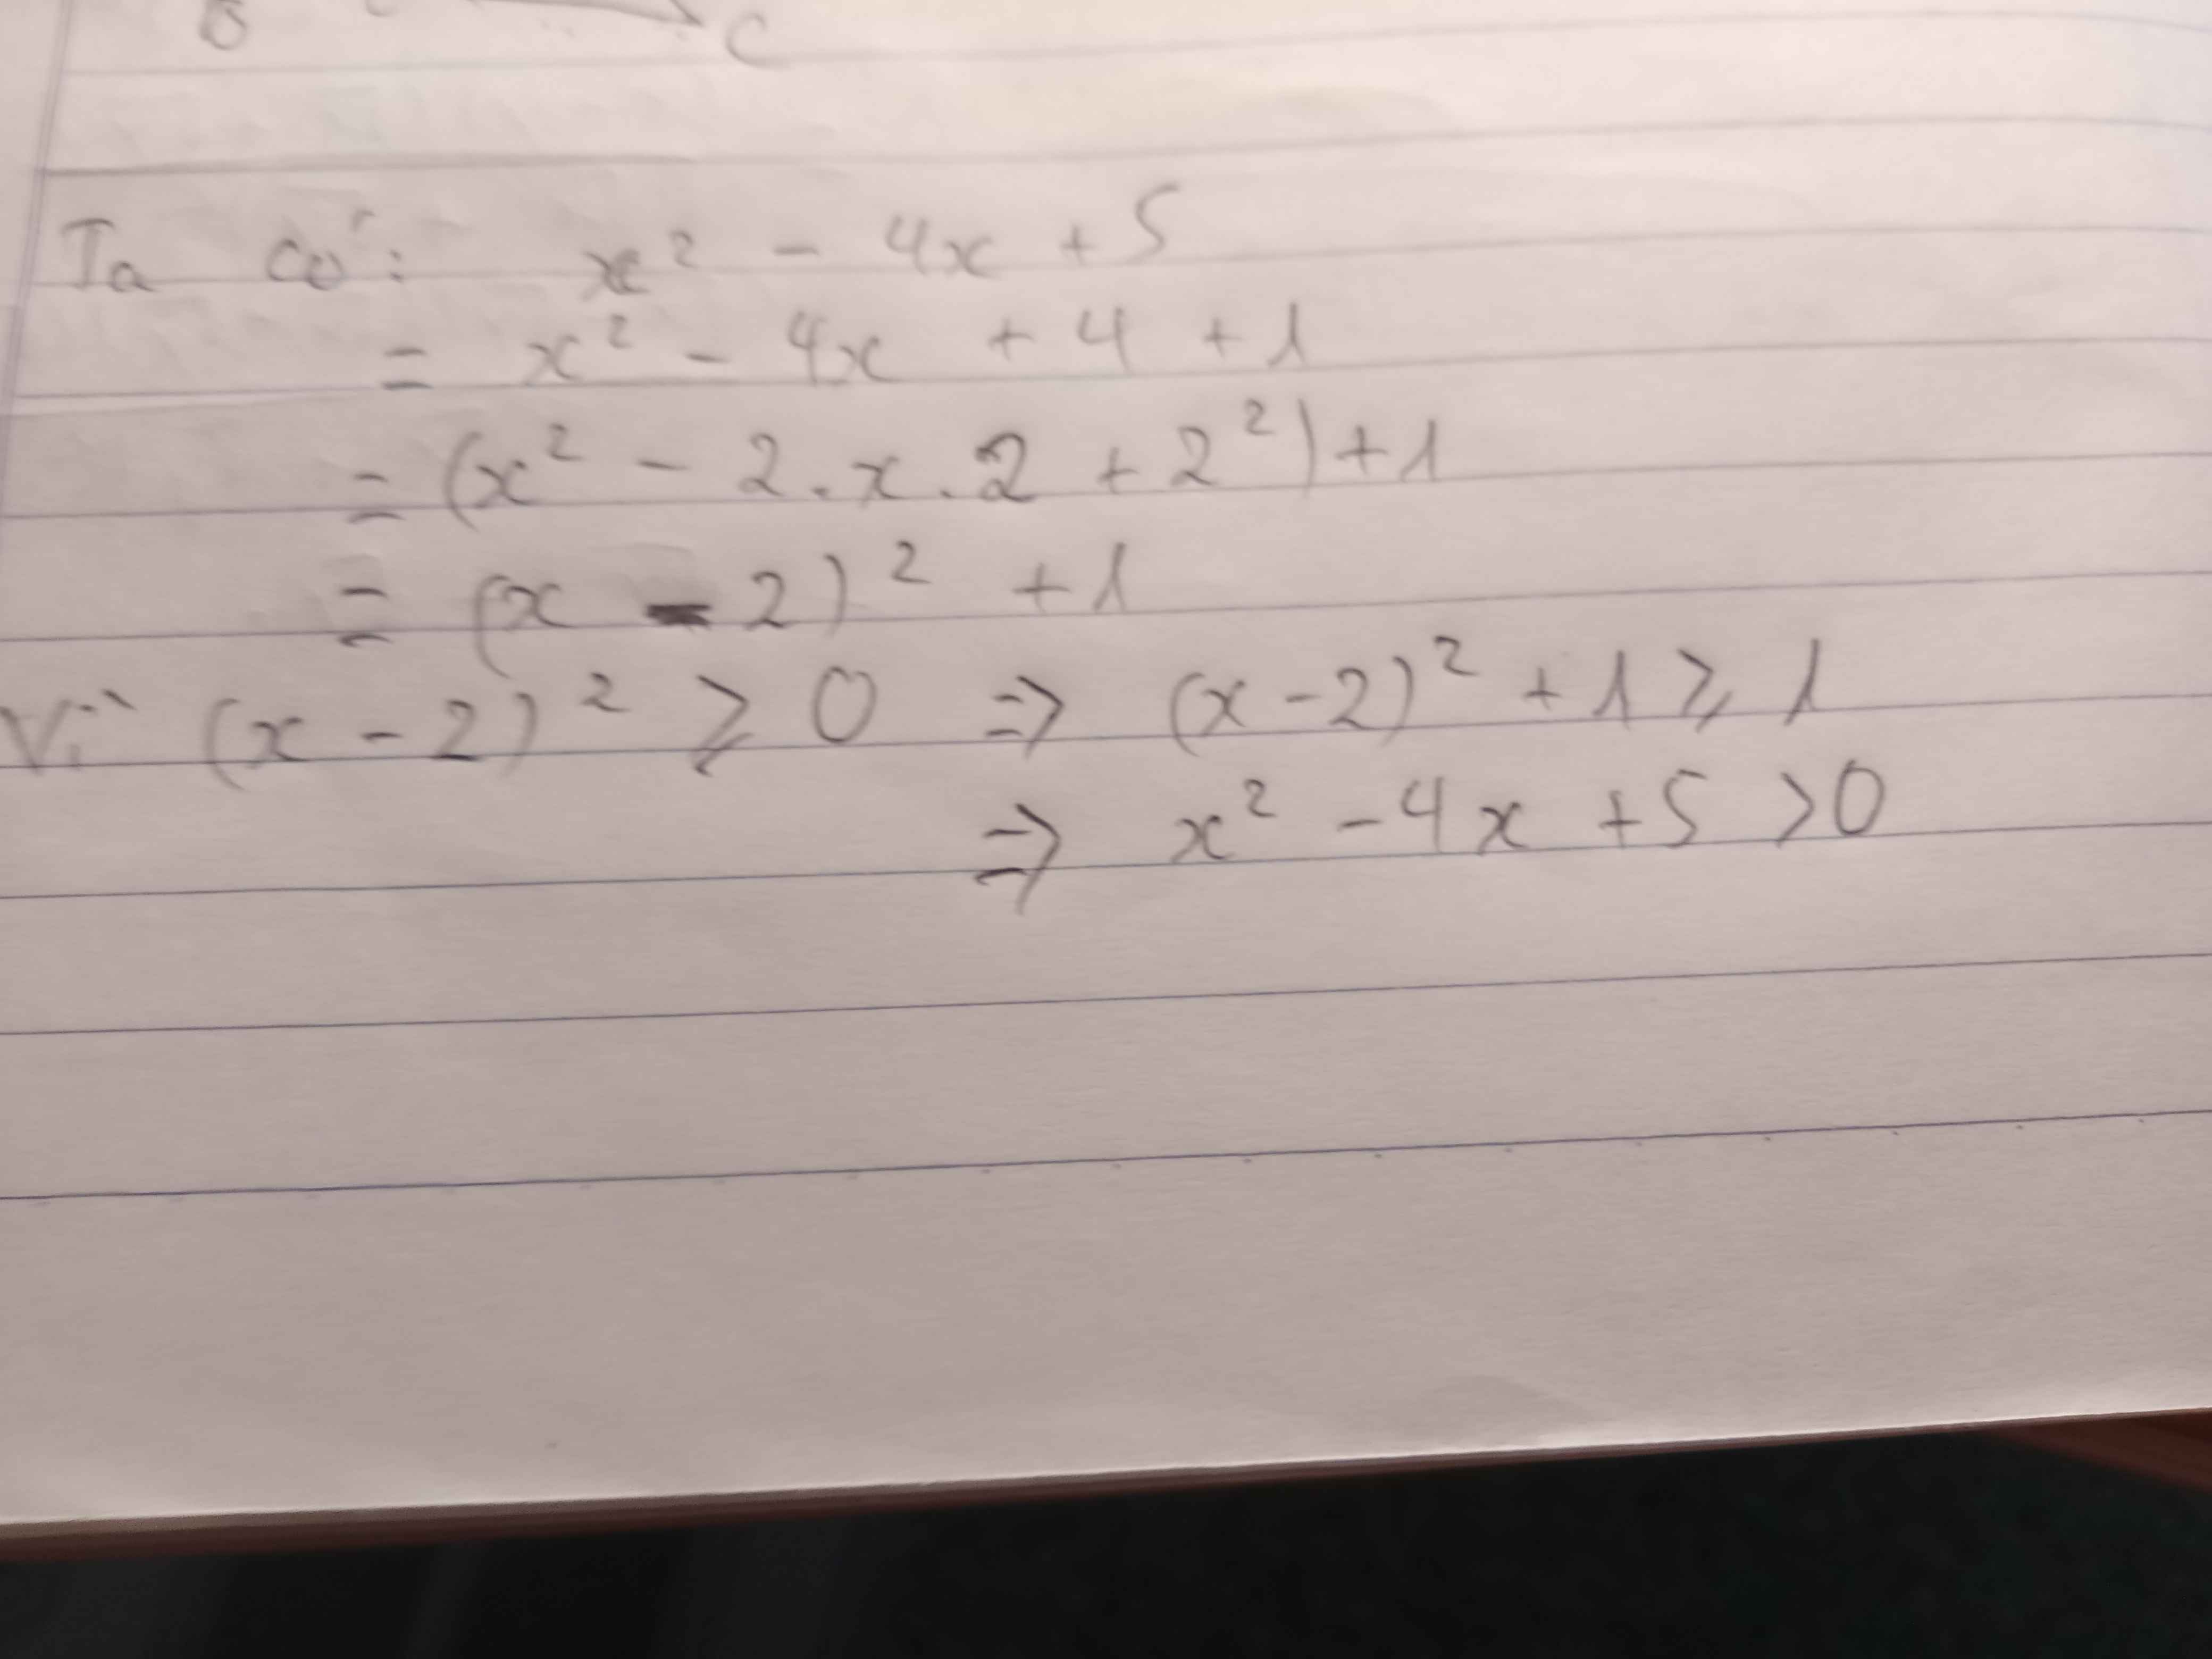 B C
Ta có: x² - 4x + 5
= x² - 4x + 4 + 1
= (x² - 2.x.2 + 2²) + 1
= (x - 2)² + 1
Vì (x - 2)² ⩾ 0 => (x - 2)² + 1 ⩾ 1
=> x² - 4x + 5 > 0